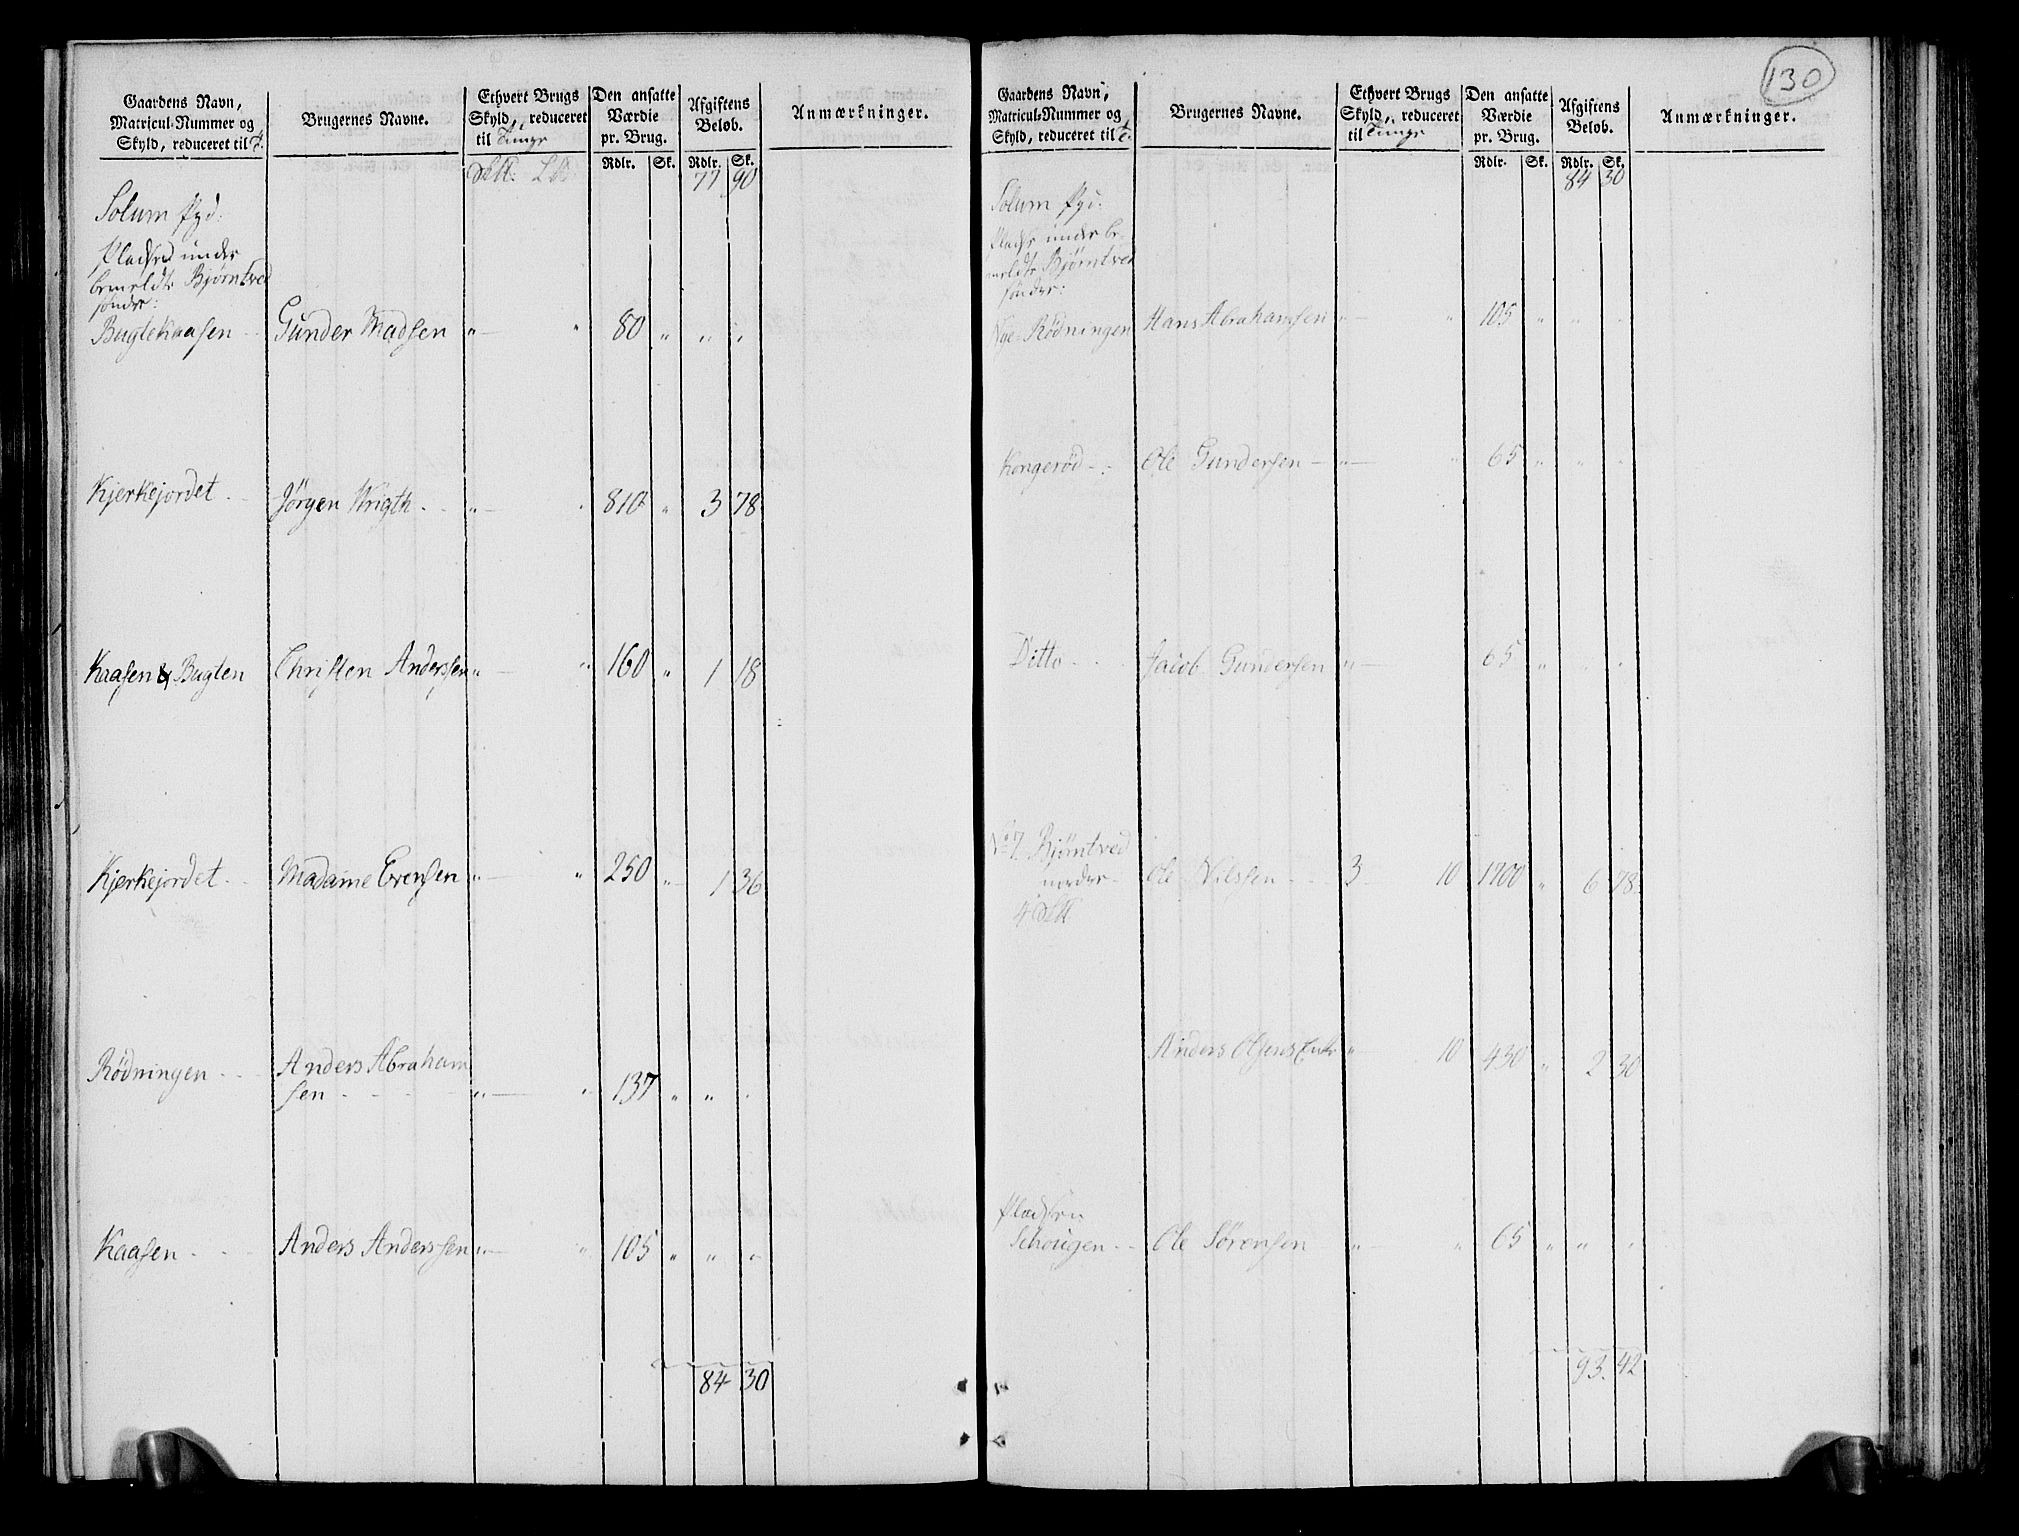 130
Gaardens Navn, Matricul-Nummer og Skyld, reduceret til
Brugernes Navne.
Ethvert Brugs Skyld, reduceret til Tunge
Den ansatte Værdie pr. Brug.
Afgiftens Beløb.
Anmærkninger.
Rdlr. Sk. Rdlr. Sk.
77 90
Solum
Pladser under
bemeldte Bjørntved
sönder:
Bugtekaasen Gunder Madsen „ „ 80 „ „ „
Kjerkejordet Jörgen Wrigth „ „ 810 „ 3 78
Kaasen & Bugten Christen Anderssen „ „ 160 „ 1 18
Kjerkejordet Madame Evensen „ „ 250 „ 1 36
Rödningen Anders Abraham
sen „ „ 137 „ „ „
Kaasen Anders Anderssen „ „ 105 „ „ „
84 30
Gaardens Navn, Matricul-Nummer og Skyld, reduceret til
Brugernes Navne.
Ethvert Brugs Skyld, reduceret til Tunge
Den ansatte Værdie pr. Brug.
Afgiftens Beløb.
Anmærkninger.
Rdlr. Sk. Rdlr. Sk.
84 30
Solum
Pladse under be-
meldte Bjørntved
sönder:
Nye Rödningen Hans Abrahamsen „ „ 105 „ „ „
Kongeröd Ole Gundersen „ „ 65 „ „ „
Ditto Jacob Gundersen „ 65 „ „ „
No 7 Bjørntved
norder Ole Nilssen 3 10 1700 „ 6 78
4
Anders Olsens Enke „ 10 430 „ 2 30
Pladsen
Schougen Ole Sörensen „ „ 65 „ „ „
93 42